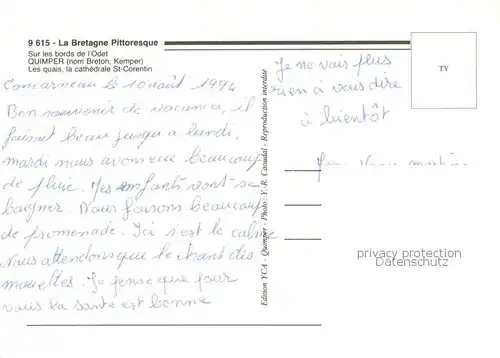 9 615 - La Bretagne Pittoresque
Sur les bords de l'Odet
QUIMPER (nom Breton, Kemper)
Les quais, la cathédrale St-Corentin
Concarneau le 10 août 1994
Bon souvenir de vacances, il
faisait beau jusqu'a lundi,
mardi nous avons eue beaucoup
de pluie. Mes enfants vont se
baigner. Nous faisons beaucoup
de promenade. Ici s'est le calme
Nous attendons que le chant des
mouettes. Je pense que pour
vous la santé est bonne
Edition YCA - Quimper - Photo : Y.-R. Caoudal - Reproduction interdite
Je ne vais plus
rien à vous dire
à bientôt
TY
privacy protection
Datenschutz